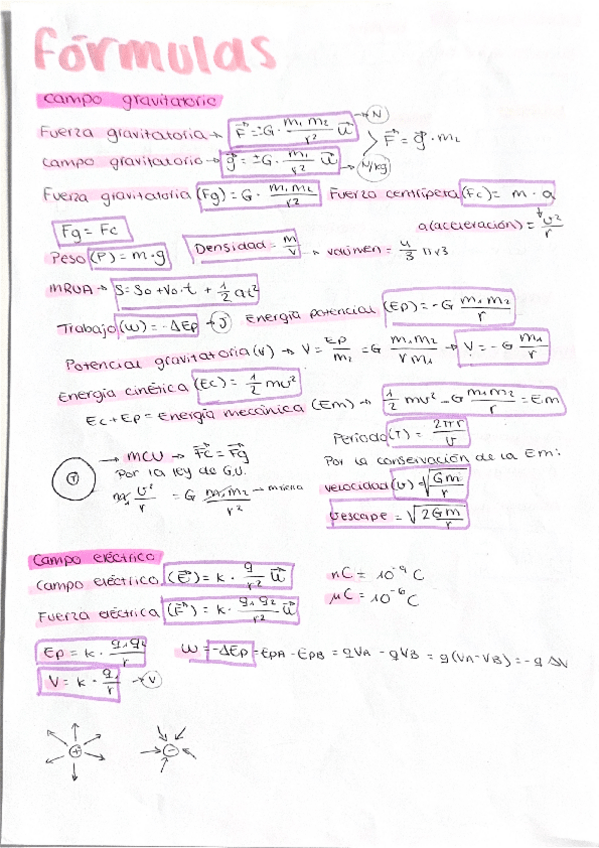 fórmulas
campo gravitatorio
Fuerza gravitatoria → F⃗ = ±G · m₁ m₂ / r² u⃗ → N
F⃗ = g⃗ · m₂
campo gravitatorio → g⃗ = ±G · m₁ / r² u⃗ → N/kg
Fuerza gravitatoria (Fg) = G · m₁ m₂ / r² Fuerza centrípeta (Fc) = m · a
Fg = Fc a(aceleración) = v² / r
Peso (P) = m · g Densidad = m / v → volumen = 4/3 π r³
MRUA → S = S₀ + V₀ · t + 1/2 at²
Trabajo (W) = -ΔEp → J Energía potencial (Ep) = - G m₁ m₂ / r
Potencial gravitatoria (V) → V = Ep / m₂ = G m₁ m₂ / r m₁ → V = - G m₁ / r
Energía cinética (Ec) = 1/2 mv²
Ec + Ep = Energía mecánica (Em) → 1/2 mv² - G m₁ m₂ / r = Em
Periodo (T) = 2πr / v
→ MCU → F⃗c = F⃗g Por la conservación de la Em:
T Por la ley de G.U. velocidad (v) = √(Gm / r)
m₁ v² / r = G m₁ m₂ / r²
Vescape = √(2Gm / r)
Campo eléctrico
Campo eléctrico (E⃗) = k · q / r² u⃗ nC = 10⁻⁹ C
Fuerza eléctrica (F⃗) = k · q₁ q₂ / r² u⃗ μC = 10⁻⁶ C
Ep = k · q₁ q₂ / r W = -ΔEp = EpA - EpB = qVA - qVB = q(VA - VB) = -q ΔV
V = k · q₁ / r → V
+ -